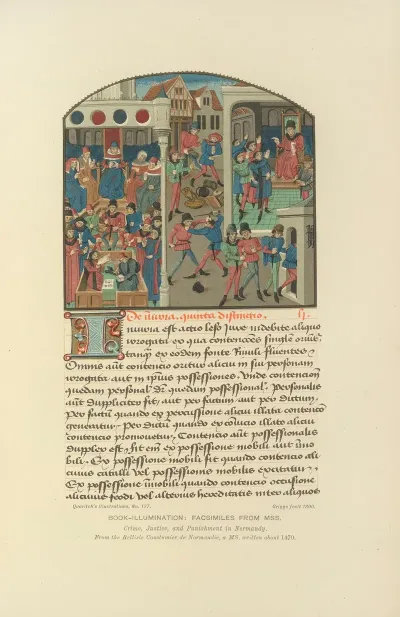 De iniuria. quinta distinctio.
Iniuria est actio lesio iure indebite aliquo
irrogata ex qua contenciões
tanq̄ ex eodem fonte Riuuli fluentes
Omnis aut̄ contencio oritur alicui in sui personam
irrogata aut in ipsius possessiones. Vnde contencionū
quedam personal' ē quedam possessional'. Personalis
aut̄ dupplicitер fit; aut per factum aut per dictum.
Per factū quando ex percussione alicui illata contencō
generatur. Per dictū quando ex cōuicio illato alicui
contencio promouetur. Contencio aūt possessionalis
duplex est. fit enī ex possessione mobili aut īmo
bili. Ex possessione mobili fit quando contencio ali
cuius catalli vel possessionis mobilis excitatur
Ex possessione īmobili quando contencio occasione
alicuius feodi vel alterius hereditatis inter aliquos
Quaritch's Illustrations, No. 117.
Griggs facit 1890.
BOOK-ILLUMINATION: FACSIMILES FROM MSS.
Crime, Justice, and Punishment in Normandy.
From the Bellivis Coustumier de Normandie, a MS. written about 1470.